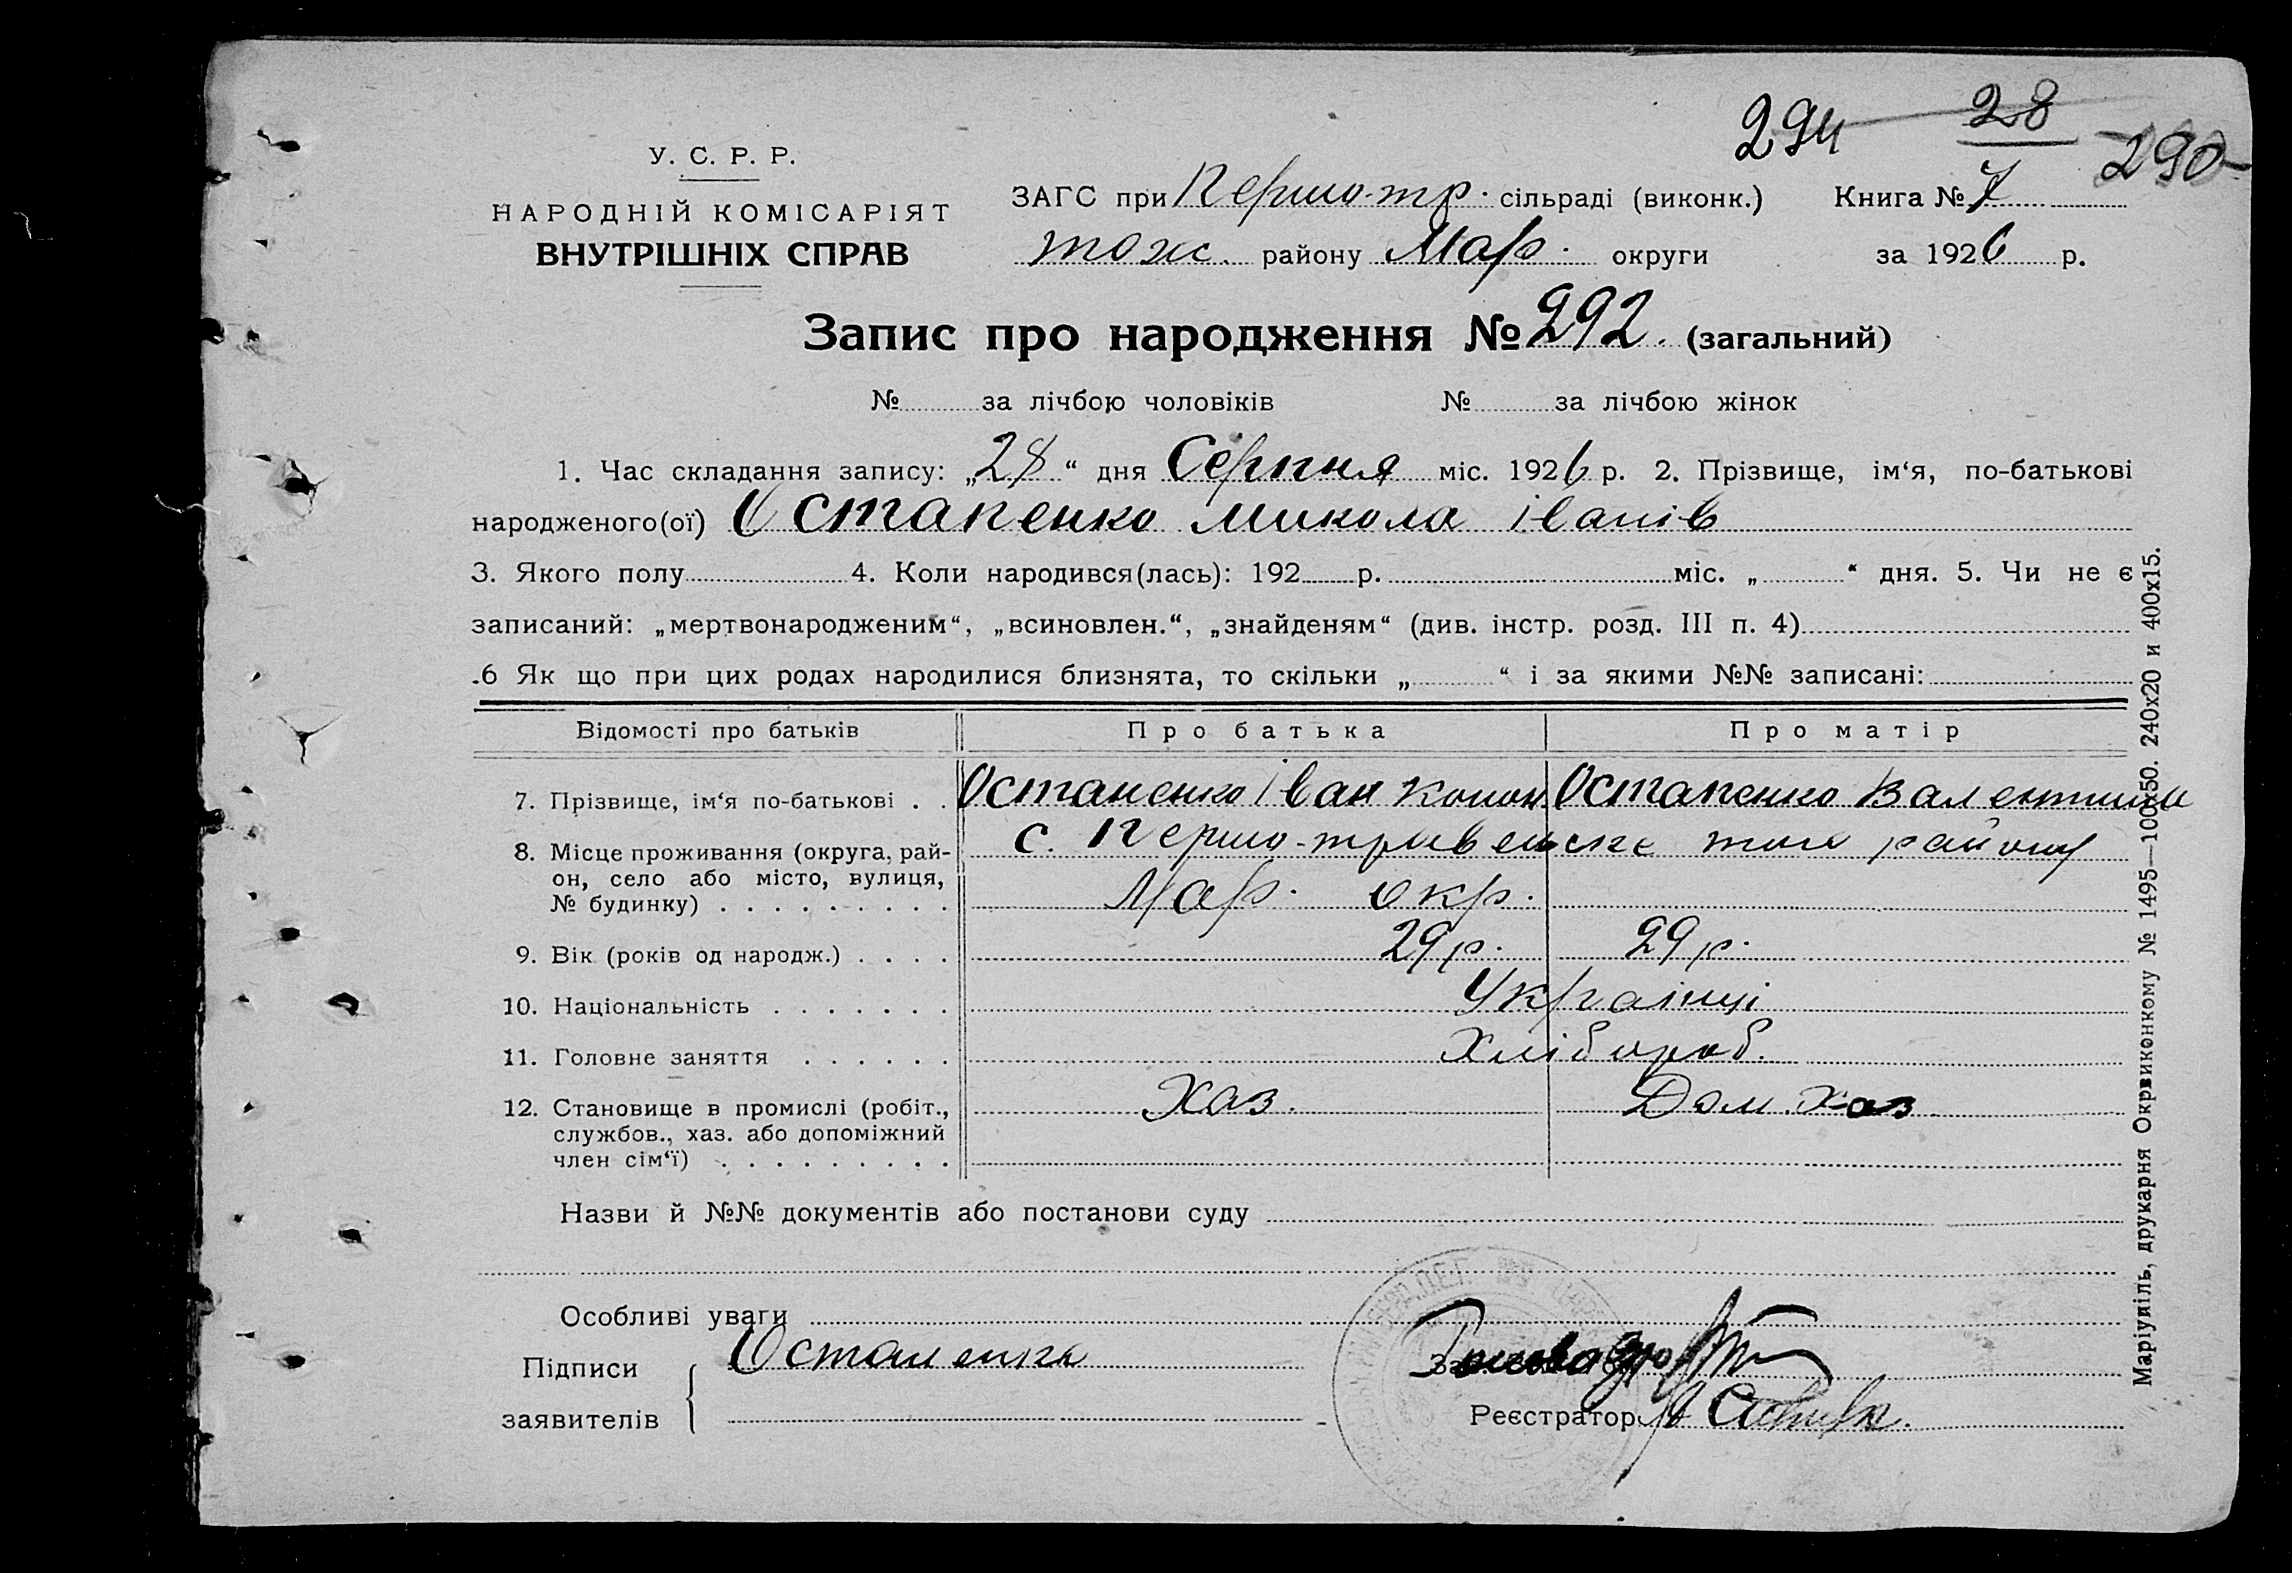 294 28 290
У. С. Р. Р.
НАРОДНІЙ КОМІСАРІЯТ
ВНУТРІШНІХ СПРАВ
ЗАГС при Першо-тр. сільраді (виконк.) Книга № 7
тож. району Мар. округи за 1926 р.
Запис про народження № 292. (загальний)
№ за лічбою чоловіків № за лічбою жінок
1. Час складання запису: „28“ дня Серпня міс. 1926 р. 2. Прізвище, ім‘я, по-батькові
народженого(ої) Остапенко Микола Іванів
3. Якого полу 4. Коли народився(лась): 192 р. міс. „ “ дня. 5. Чи не є
записаний: „мертвонародженим“, „всиновлен.“, „знайденям“ (див. інстр. розд. III п. 4)
.6 Як що при цих родах народилися близнята, то скільки „ “ і за якими №№ записані:
Відомості про батьків Про батька Про матір
7. Прізвище, ім‘я по-батькові . . Остапенко Іван Конон. Остапенко Валентина
8. Місце проживання (округа, рай- с. Першо-травенське того району
он, село або місто, вулиця,
№ будинку) . . . . . . . . . Мар. окр.
9. Вік (років од народж.) . . . . 29 р. 29 р.
10. Національність . . . . . . . Українці
11. Головне заняття . . . . . . Хлібороб.
12. Становище в промислі (робіт., Хаз. Дом. Хаз
службов., хаз. або допоміжний
член сім‘ї) . . . . . . . . .
Назви й №№ документів або постанови суду
Особливі уваги
Підписи Остапенко
заявителів
Реєстратор
Маріупіль, друкарня Окрвиконкому № 1495—100х50. 240х20 и 400х15.